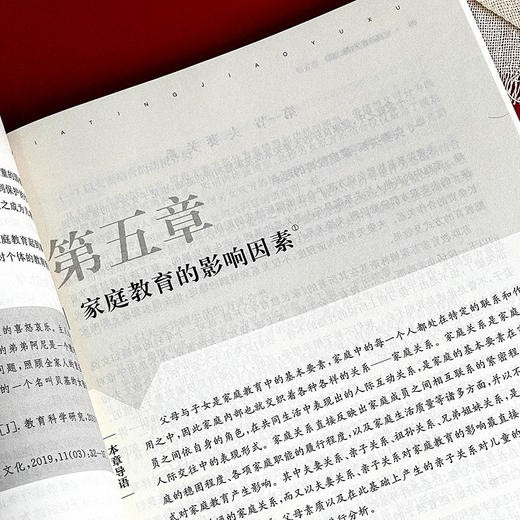 IATINGJIAOYUXU
第五章
家庭教育的影响因素①
本章导语
父母与子女是家庭教育中的基本要素，家庭中的每一个人都处在特定的联系和作
用之中，因此家庭内部也就交织着各种各样的关系——家庭关系。家庭关系是家庭
员之间依自身的角色，在共同生活中表现出的人际互动关系，是家庭的基本要素在
人际交往中的表现形式。家庭关系直接反映出家庭成员之间相互联系的紧密程
庭的稳固程度、各项家庭职能的履行程度，以及家庭生活质量等诸多方面，并以不
式对家庭教育产生影响。其中夫妻关系、亲子关系、祖孙关系、兄弟姐妹关系，是
的家庭关系，而又以夫妻关系、亲子关系对家庭教育的影响最直接
父母素质以及在此基础上产生的亲子关系对儿童的
进行分析。
庭教育超
对个体的教育
的喜怒哀乐、主人
的弟弟阿尼是一个
问题，照顾全家人的
的一个名叫贝基的女
[J]. 教育科学研究,
文化,2019,11(03),32-